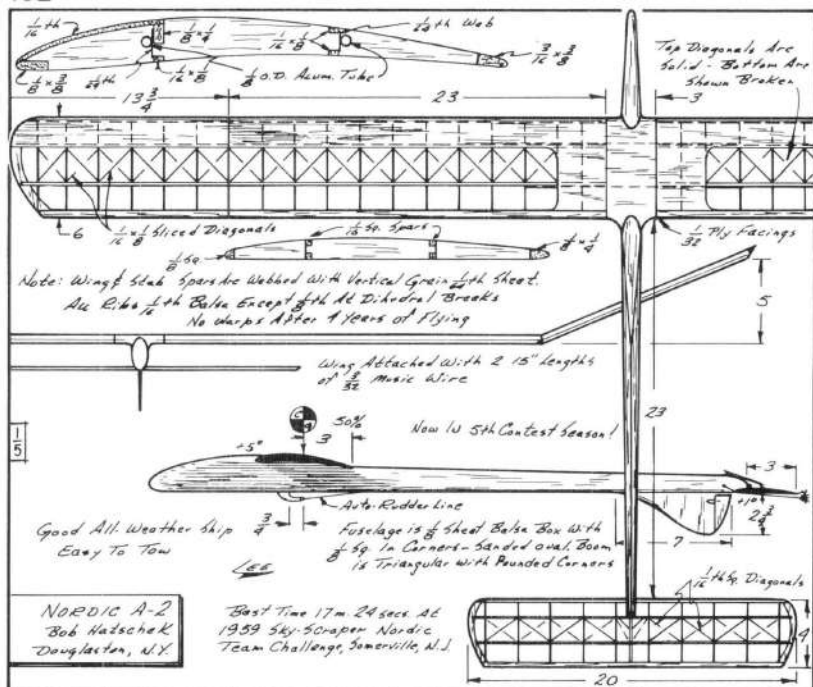 1/16 th
1/8 x 1/4
1/16 x 1/8
1/64 th Web
3/16 x 3/8
1/8 x 3/8
1/64 th
1/16 x 1/8
1/8 O.D. Alum. Tube
Top Diagonals Are
Solid - Bottom Are
Shown Broken
13 3/4
23
3
6
1/16 x 1/8 Sliced Diagonals
1/16 Sq. Spars
1/8 Sq.
1/8 x 1/4
1/32 Ply Facings
Note: Wing & Stab Spars Are Webbed With Vertical Grain 1/64 th Sheet.
All Ribs 1/16 th Balsa Except 1/8 th At Dihedral Breaks
No Warps After 4 Years of Flying
5
Wing Attached With 2 15" Lengths
of 3/32 Music Wire
23
CG
3
50%
Now In 5th Contest Season!
1/5
+5°
3
+1°
2 3/4
3/4
Auto-Rudder Line
7
Good All-Weather Ship
Easy To Tow
Fuselage is 1/8 Sheet Balsa Box With
1/8 Sq. In Corners - Sanded oval. Boom
is Triangular With Rounded Corners
LEE
1/16 th Sq. Diagonals
NORDIC A-2
Bob Hatschek
Douglaston, N.Y.
Best Time 17 m. 24 secs. At
1959 Sky-Scraper Nordic
Team Challenge, Somerville, N.J.
4
20